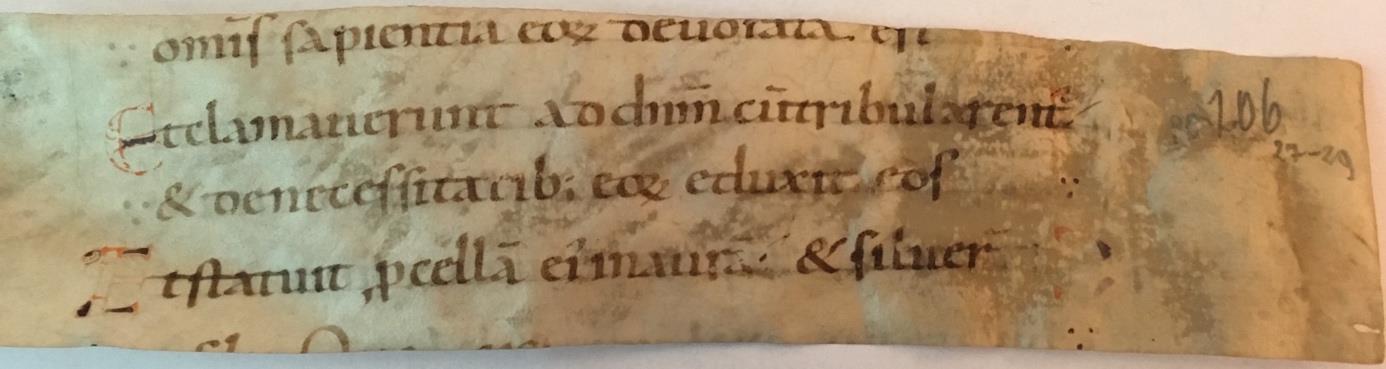 omīſ ſapientia eoꝝ deuorata. eſt
Et clamauerunt ad dnm̄ cū tribularent᷑
& de neceſſitatib; eoꝝ eduxit eoſ
Et ſtatuit ꝓcellā ei᷒ in aurā & ſiluer̄
106
27-29